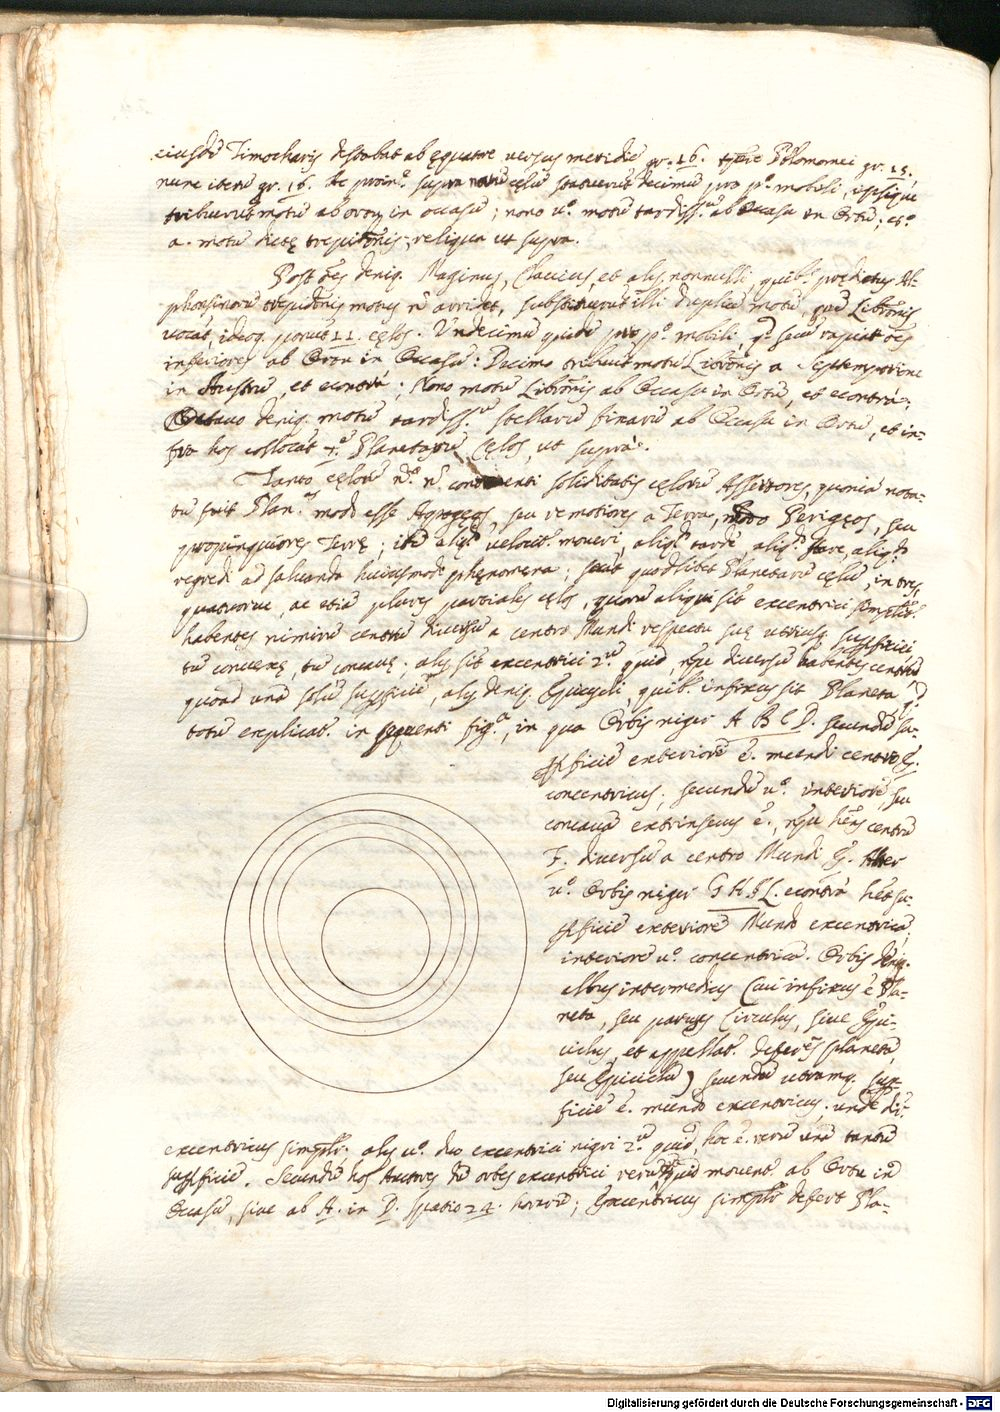 eiusdẽ Timocharis distabat ab ęquatre versus meridiẽ gr. 16. tp̃re Ptlomomei gr. 15.,
nunc iterũ gr. 16. Ac proin.ᵉ supra cęlũ statuerũt decimũ pro p.º mobili, ipsique
tribuerũt motũ ab ortu in occasũ; nono v.º motũ tardiss.ũ ab Occasu in Ortũ; et 8.º
a. motũ dictę trepidõnis, reliqua ut supra.
Post ões deniq. Maginus, Clavius, et alij nonnulli, quib.ˢ prędictus Al-
phonsinorũ trepidõnis motus nõ arridet, substituerũt illi duplicẽ motũ, quẽ Librõnis
vocãt, ideoq. ponũt 11. cęlos. Undecimũ quidẽ pro p.º mobili, q.ᵈ secũ rapiat ões
inferiores ab Ortu in Occasũ: Decimo tribuũt motũ Librõnis a Septemptrione
in Austrũ, et econtrà; Nono motũ Librõnis ab Occasu in Ortũ, et econtrà;
Octavo deniq. motũ tardiss.ũ stellarũ fixarũ ab Occasu in Ortũ, et in-
fra hos collocãt 7. Planetarũ Cęlos, ut suprà.
Tanto cęlorũ n.º nõ contenti soliditatis cęlorũ Assertores, quoniã nota-
tũ fuit Plan.ᵃˢ modò esse Apogęos, seu remotiores a Terra, modo Perigęos, seu
propinquiores Terrę; itẽ aliq.ᵈᵒ velocit.ʳ moveri, aliq.ᵈᵒ tardè, aliq.ᵈᵒ stare, aliq.ᵈᵒ
regredi ad salvanda huiusmodi phęnomena; quodlibet Planetarũ cęlũ, in tres,
quatuorve, ac etiã plures partiales cęlos, quorũ aliqui sĩt excentrici simplic.ʳ
habentes nimirũ centrũ diversũ a centro Mundi respectu suę utriusq. suꝑficiei
tũ convexę, tũ concavę; alij sĩt excentrici 2.ᵐ quid, nẽpe diversũ habentes centrũ
quoad unã solũ suꝑficiẽ, alij deniq. Epicycli, quib.ˢ infixus sit Planeta. q.ᵈ
totũ explicat.ʳ in sequenti fig.ᵃ, in qua Orbis niger A B C D. secundũ su-
ꝑficiẽ exteriorẽ ẽ. mundi centro E.
concentricus; secundũ v.º interiorẽ, seu
concavã extrinsecus ẽ., nẽpe hẽns centrũ
F. diversũ a centro Mundi E. Alter
v.º Orbis niger G H I L. econtrà hẽt su-
ꝑficiẽ exteriorẽ Mundo excentricã,
interiorẽ v.º concentricã. Orbis deniq.
albus intermedius (cui infixus ẽ Pla-
neta, seu parvus Circulus, sive Epi-
ciclus, et appellat.ʳ deferẽs planetã,
seu Epiciclũ) secundũ utramq. suꝑ-
ficiẽ ẽ. mundo excentricus: unde dr̃.
excentricus simplr̃; alij v.º duo excentrici nigri 2.ᵐ quid, hoc ẽ. verũ unã tantũ
suꝑficiẽ. Secundũ hos Auctores duo orbes excentrici verũ quid movent.ʳ ab Ortu in
Occasũ, sive ab A. in D. spatio 24. horarũ; Excentricus simplr̃ defert Pla-
Digitalisierung gefördert durch die Deutsche Forschungsgemeinschaft - DFG